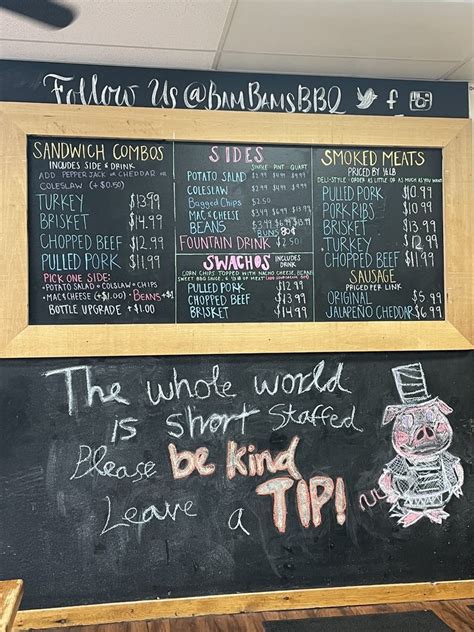 Follow Us @BamBamsBBQ
SANDWICH COMBOS
INCLUDES SIDE & DRINK
ADD PEPPER JACK OR CHEDDAR OR
COLESLAW (+ $0.50)
TURKEY $13.99
BRISKET $14.99
CHOPPED BEEF $12.99
PULLED PORK $11.99
PICK ONE SIDE:
•POTATO SALAD •COLSLAW •CHIPS
•MAC&CHEESE (+$1.00) •BEANS +$1
BOTTLE UPGRADE +$1.00
SIDES
SINGLE PINT QUART
POTATO SALAD $2.99 $4.99
COLESLAW
Bagged Chips $2.50
MAC&CHEESE $3.99 $6.99 $13.99
BEANS $3.99
BUNS 80¢
FOUNTAIN DRINK $2.50
SWACHOS INCLUDES DRINK
CORN CHIPS TOPPED WITH NACHO CHEESE, BEANS
SWEET BBQ SAUCE, & 1/3 LB OF MEAT
PULLED PORK $12.99
CHOPPED BEEF $13.99
BRISKET $14.99
SMOKED MEATS
PRICED BY ½LB
DELI-STYLE: ORDER AS LITTLE OR AS MUCH AS YOU WANT
PULLED PORK $10.99
PORK RIBS $10.99
BRISKET $13.99
TURKEY $12.99
CHOPPED BEEF $11.99
SAUSAGE
PRICED PER LINK
ORIGINAL $5.99
JALAPEÑO CHEDDAR $6.99
The whole world
is short Staffed
Please be kind
Leave a TIP!